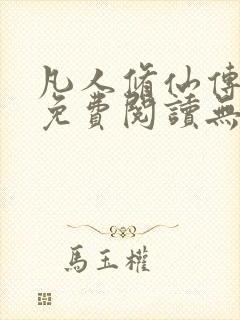 凡人脩仙傳
免費閱讀無
馬玉權